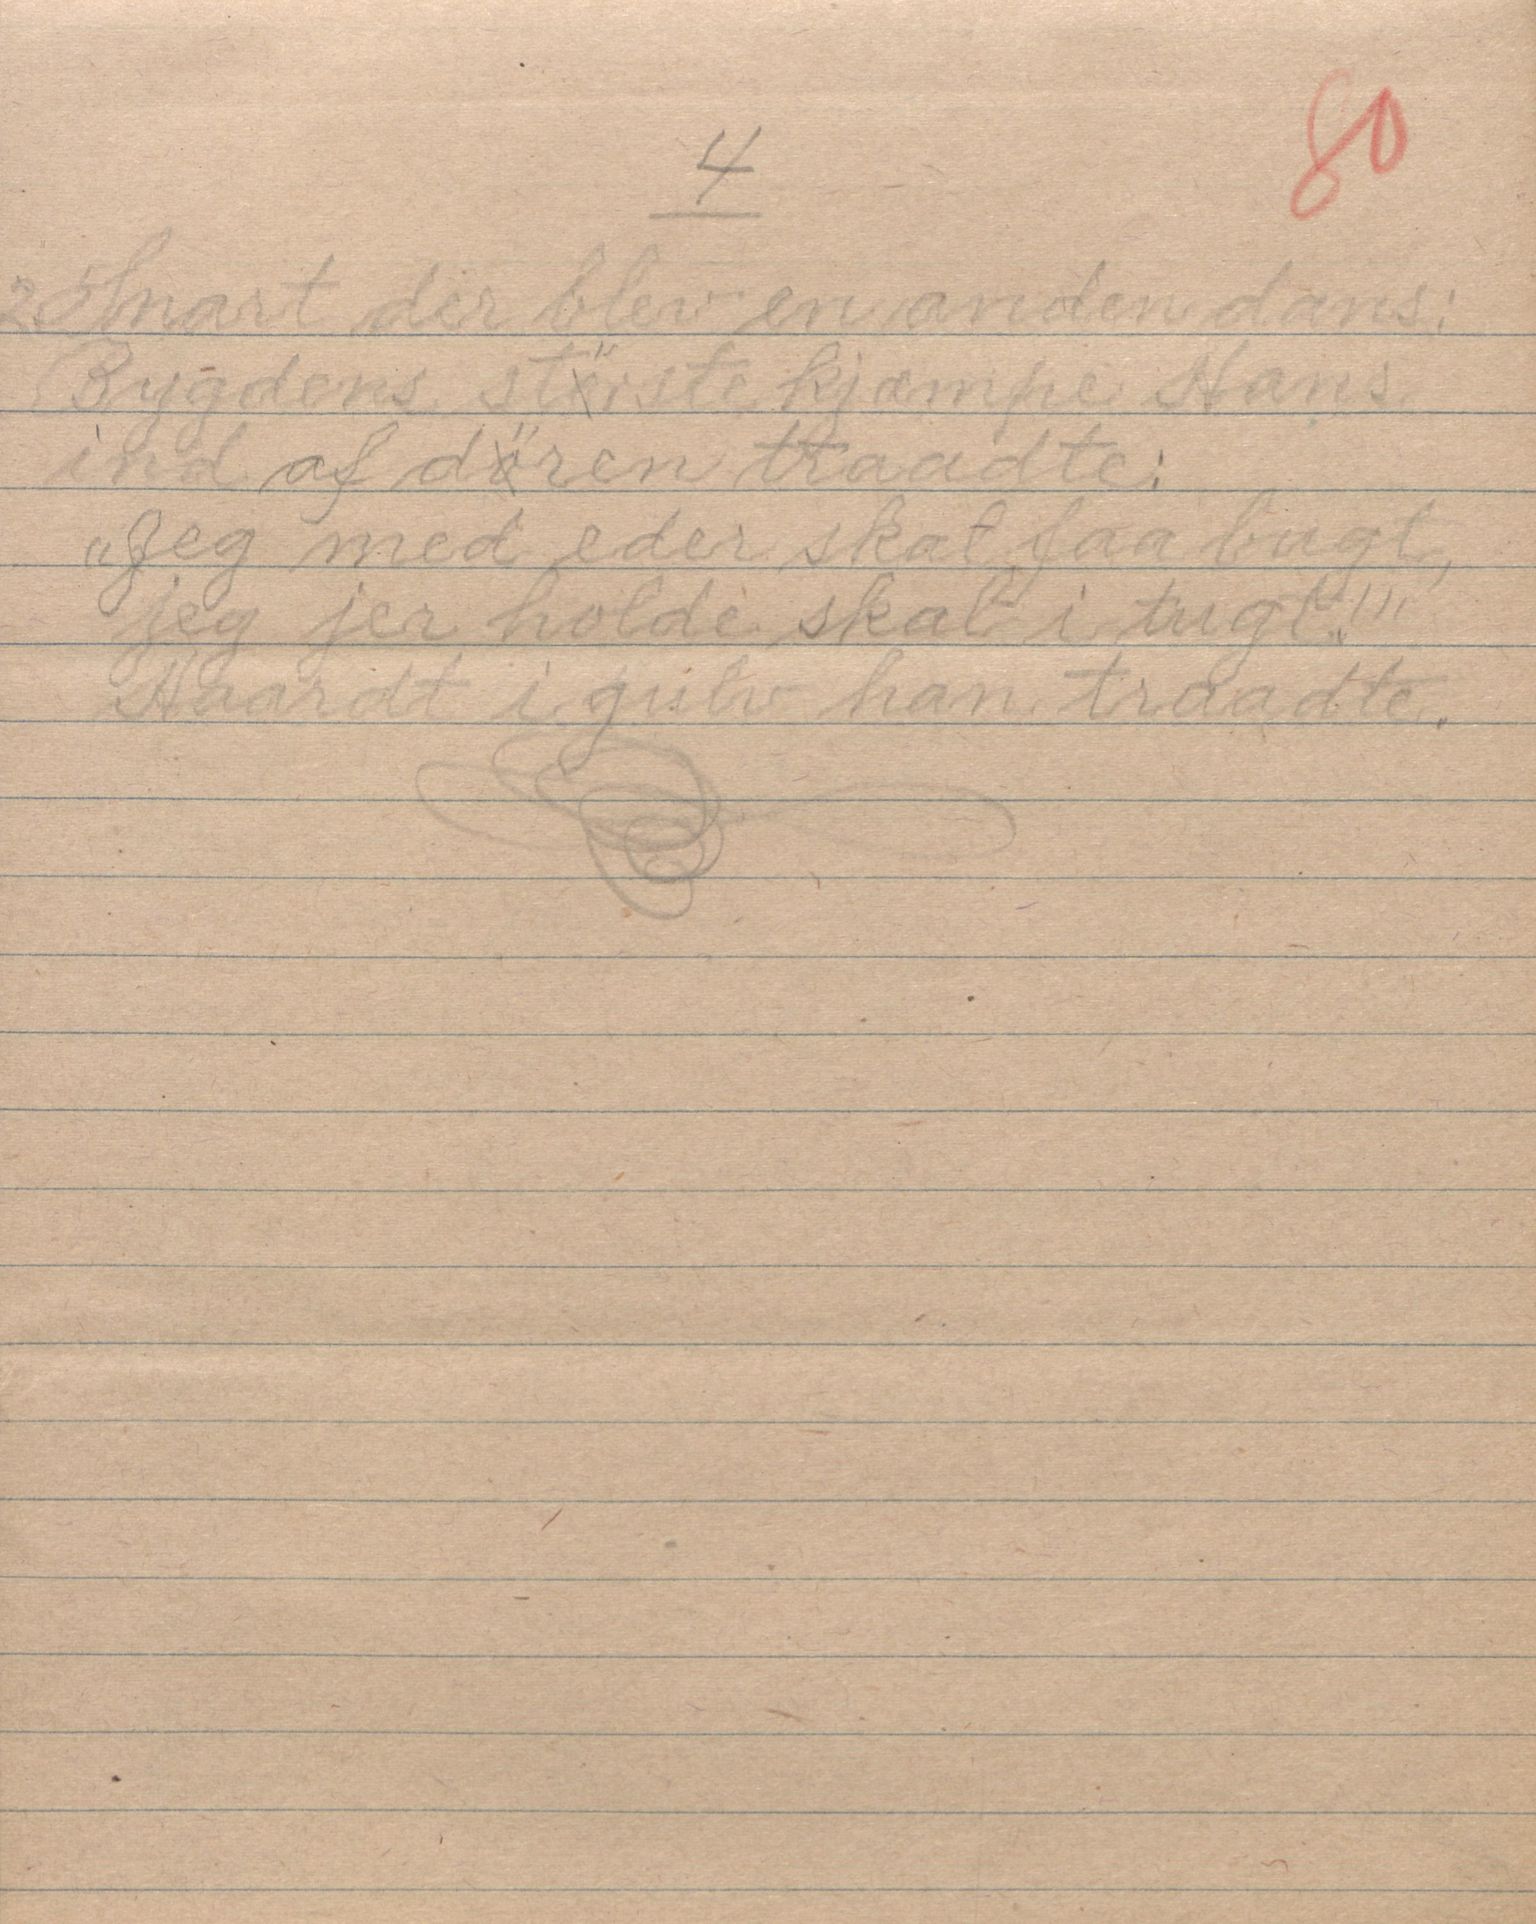 80
4
2. Snart der blev en anden dans:
Bygdens störste kjæmpe Hans
ind af dören traadte:
„Jeg med eder skal faa bugt,
jeg jer holde skal i tugt!"
Haardt i gulv han traadte.